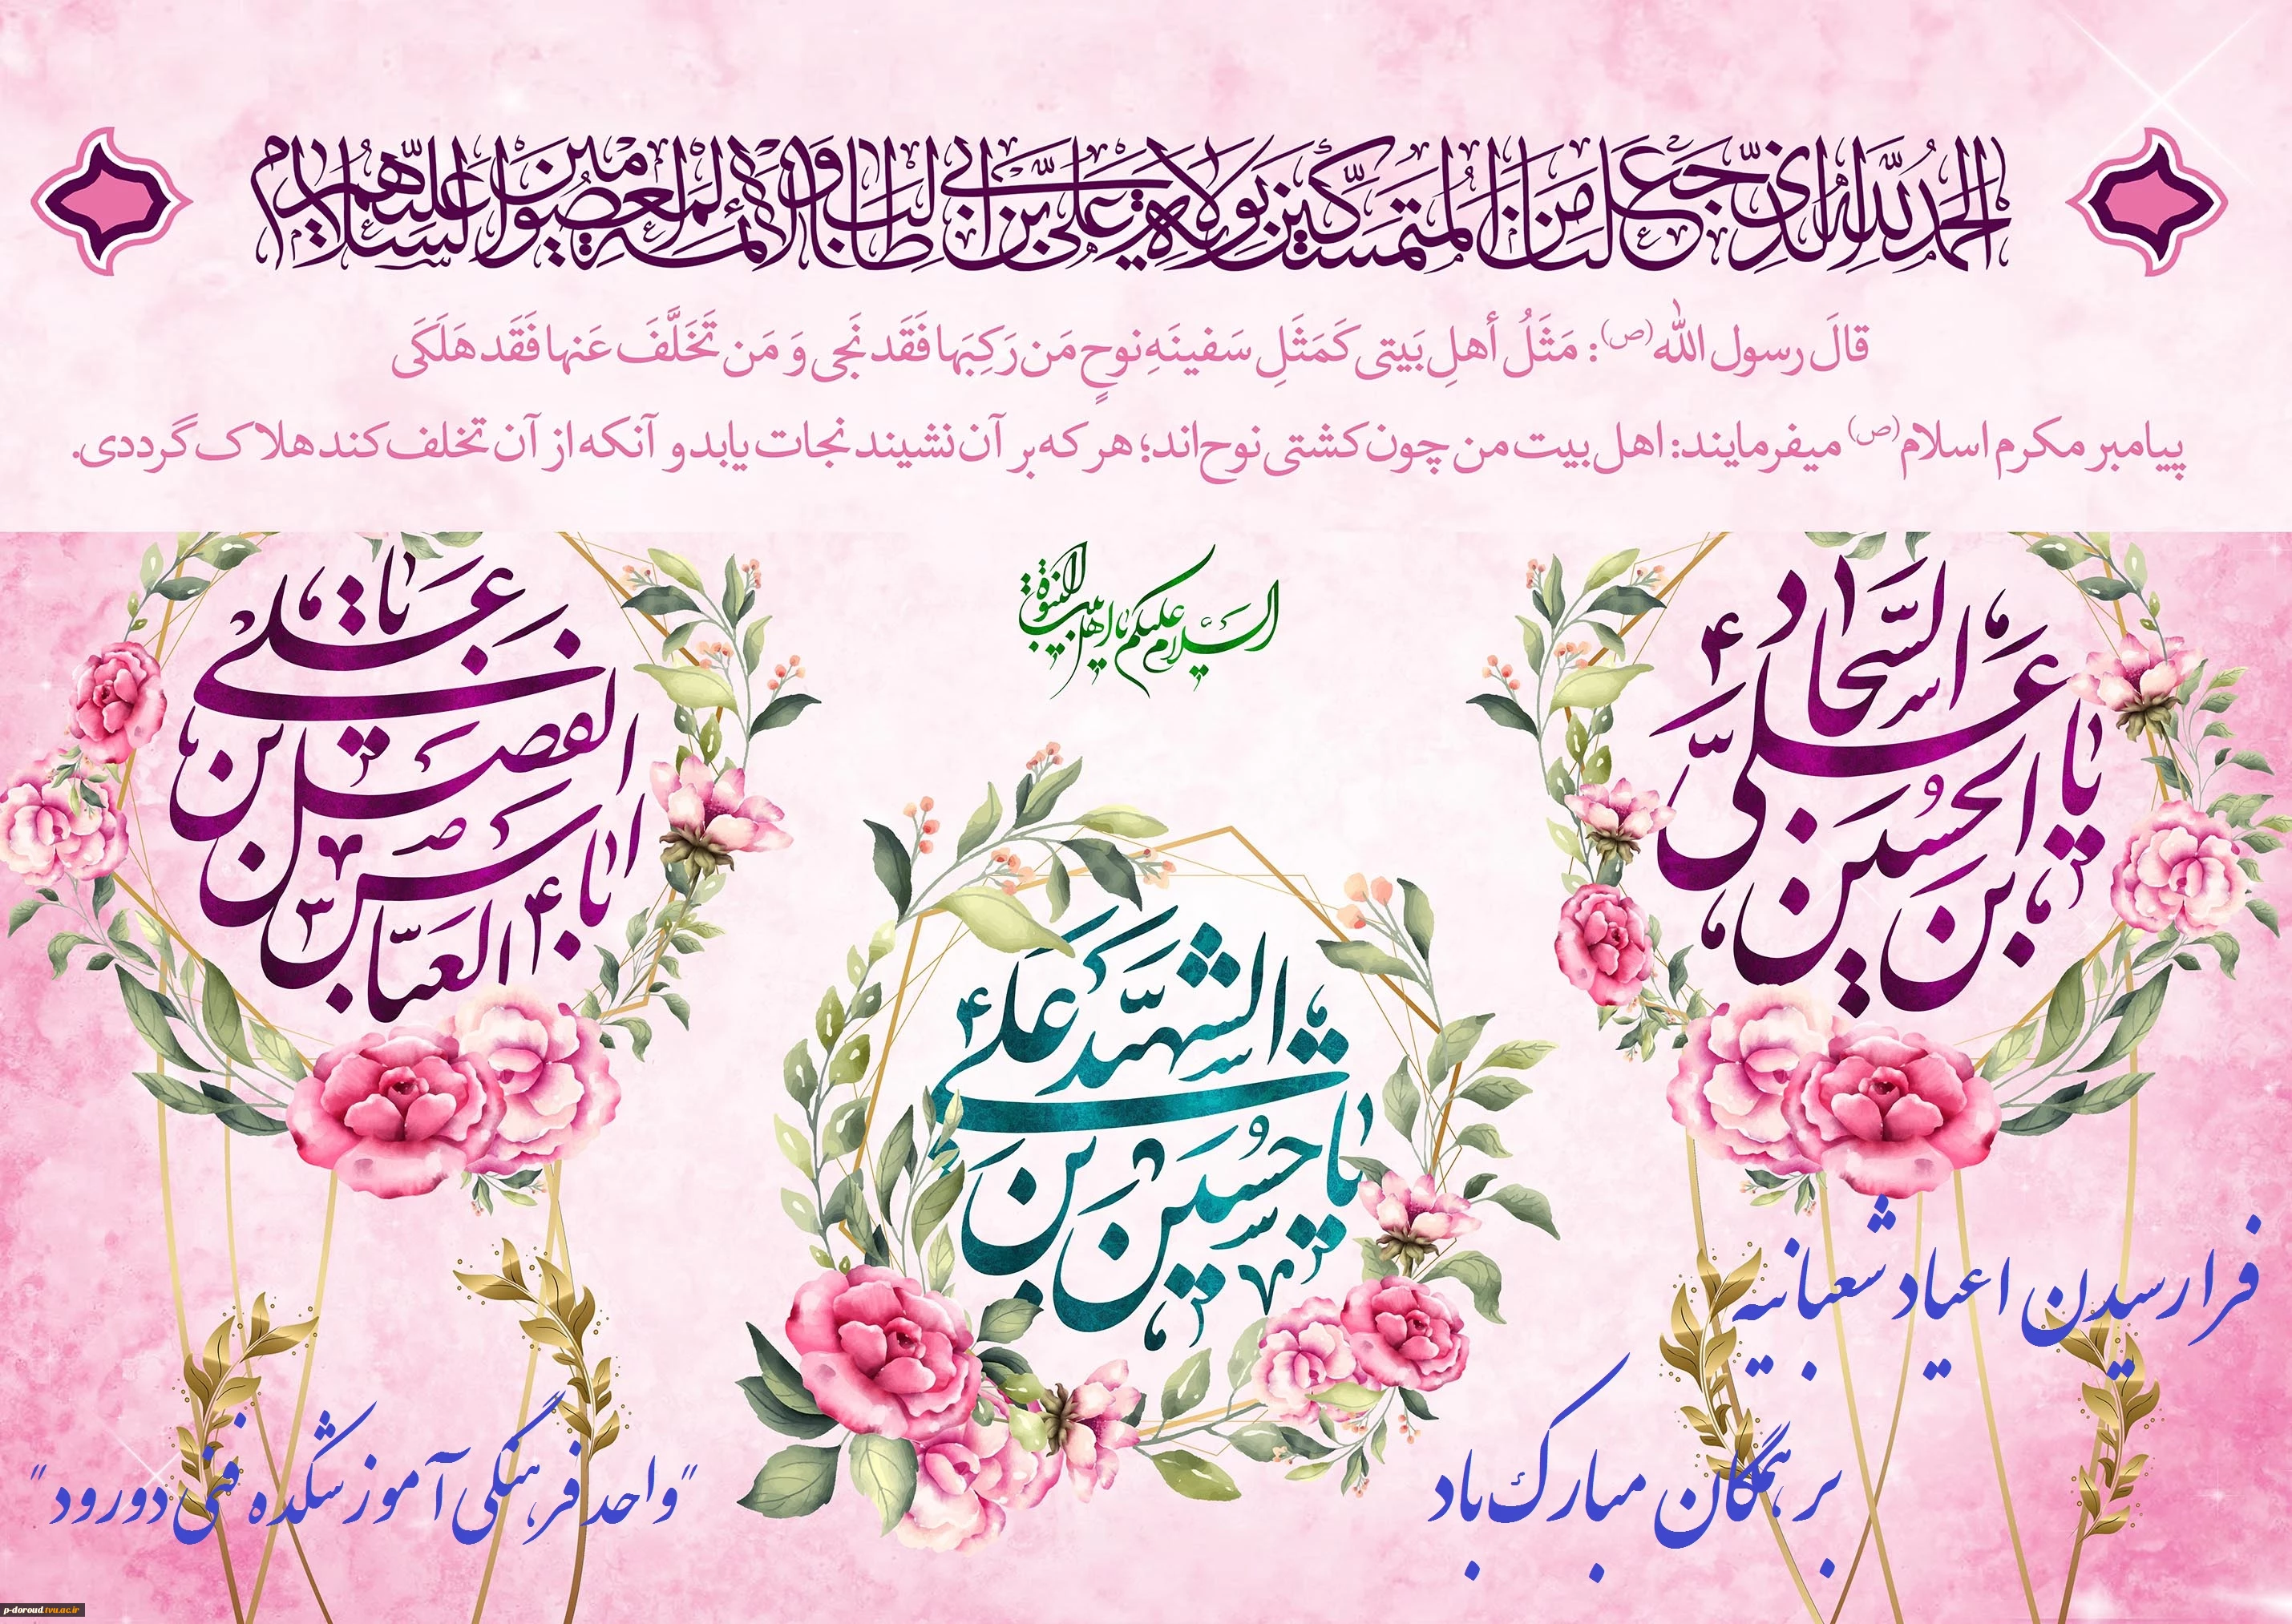 الحمد لله الذی جعلنا من المتمسکین بولایة علی بن ابی طالب و الائمة المعصومین علیهم السلام
قالَ رسول الله (ص): مَثَلُ أهلِ بَیتی کَمَثَلِ سَفینَهِ نوحٍ مَن رَکِبَها فَقَد نَجی وَ مَن تَخَلَّفَ عَنها فَقَد هَلَکَی
پیامبر مکرم اسلام (ص) میفرمایند: اهل بیت من چون کشتی نوح‌اند؛ هر که بر آن نشیند نجات یابد و آنکه از آن تخلف کند هلاک گرددی.
السلام علیکم یا اهل بیت النبوة
یا علی بن الحسین السجاد
یا حسین بن علی الشهید
یا اباالفضل العباس بن علی
فرارسیدن اعیاد شعبانیه
بر همگان مبارک باد
"واحد فرهنگی آموزشکده فنی دورود"
p-doroud.tvu.ac.ir